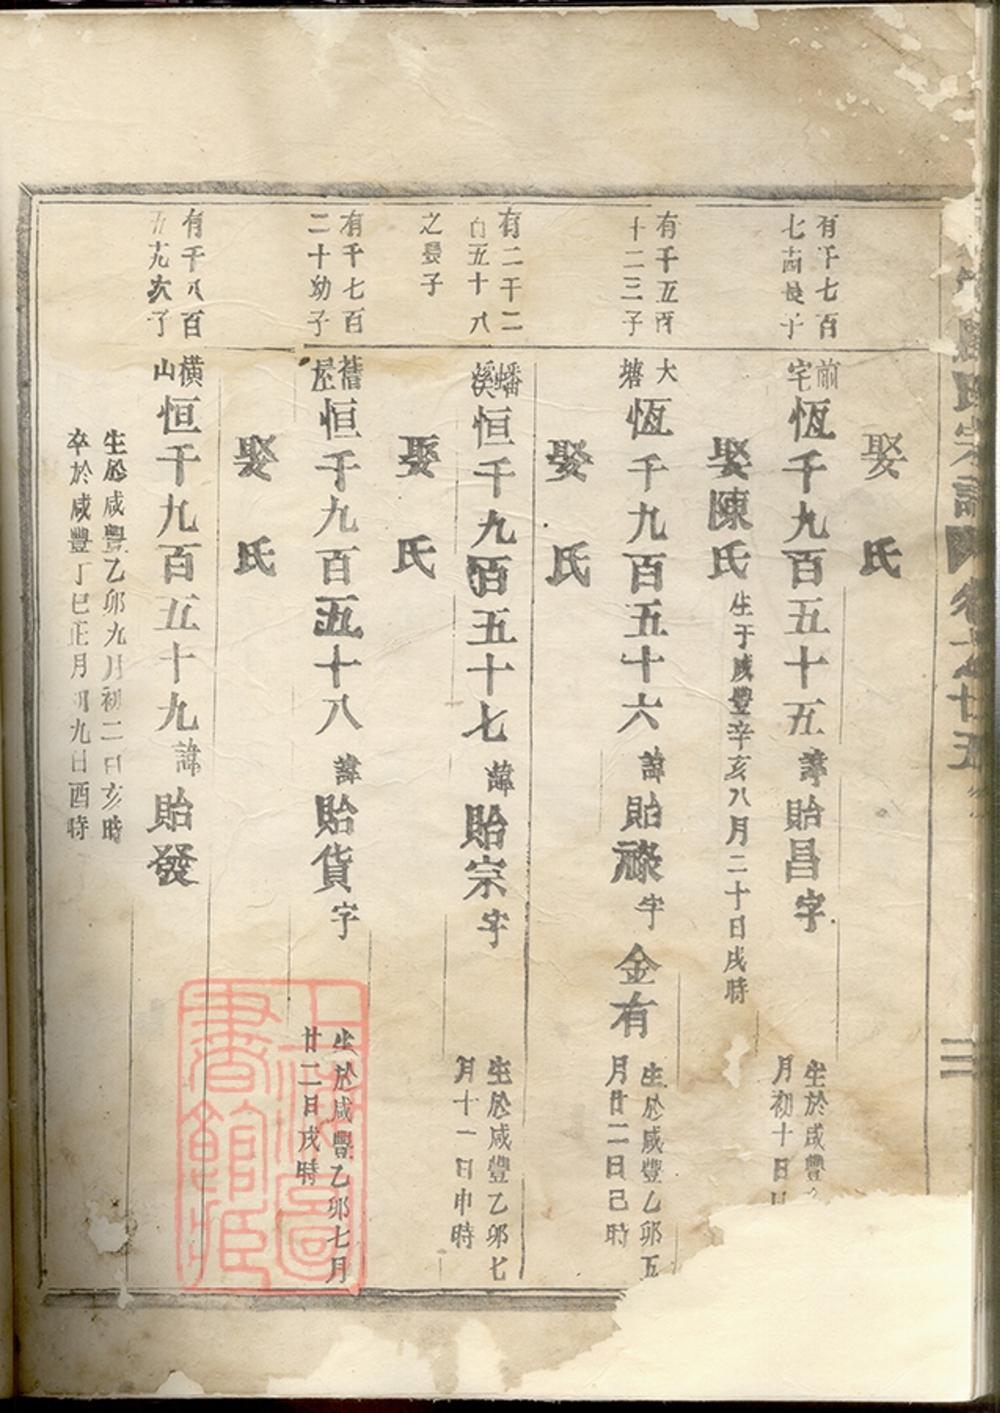 氏宗譜
卷之十五
娶 氏
有千七百
七 長子
前宅
恆千九百五十五諱貽昌字
生於咸豐
月初十日
娶陳氏生于咸豐辛亥八月二十日戌時
有千五百
十二三子
大塘
恆千九百五十六諱貽祿字金有
生於咸豐乙卯五
月廿二日己時
娶 氏
有二千二
百五十八
之長子
蟠溪
恒千九百五十七諱貽宗字
生於咸豐乙卯七
月十一日申時
娶 氏
有千七百
二十幼子
舊屋
恒千九百五十八諱貽貨字
生於咸豐乙卯七月
廿二日戌時
娶 氏
有千八百
五九次子
橫山
恒千九百五十九諱貽發
生於咸豐乙卯九月初二日亥時
卒於咸豐丁巳正月初九日酉時
上海圖
書館藏